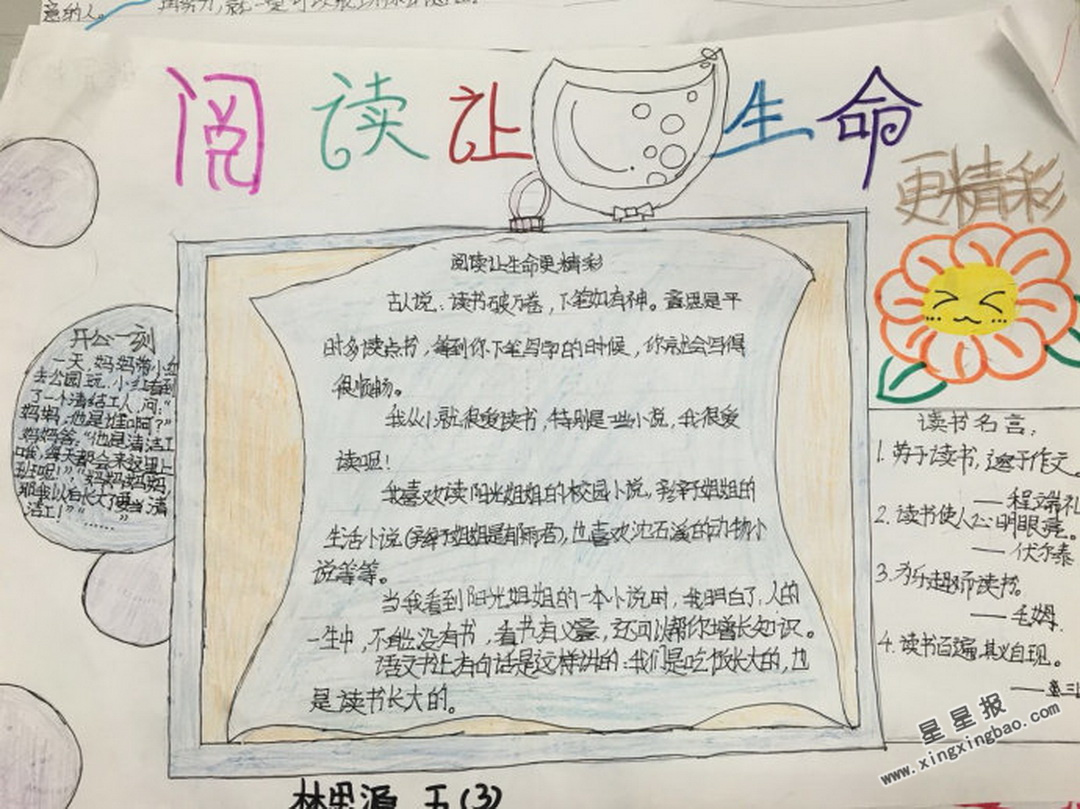 阅读让生命
更精彩
阅读让生命更精彩
古人说：读书破万卷，下笔如有神。意思是平
时多读点书，等到你下笔写字的时候，你就会写得
很顺畅。
我从小就很爱读书，特别是一些小说，我很爱
读呢！
我喜欢读阳光姐姐的校园小说，姐姐的
生活小说（姐姐是郁雨君），也喜欢沈石溪的动物小
说等等。
当我看到阳光姐姐的一本小说时，我明白了，人的
一生中，不能没有书，看书有义意，还可以帮你增长知识。
语文书上有句话是这样讲的：我们是吃饭长大的，也
是读书长大的。
开心一刻
一天，妈妈带小红
去公园玩，小红看到
了一个清结工人，问："
妈妈，他是谁啊？"
妈妈答："他是清洁工
哦，每天都会来这里上
班呢！""妈妈妈妈，
那我以后长大了要当清
洁工！""……"
读书名言：
1. 劳于读书，逸于作文。
——程端礼
2. 读书使人心明眼亮。
——伏尔泰
3. 读书。
——毛姆
4. 读书百遍，其义自现。
林思源 五(3)
星星报
www.xingxingbao.com